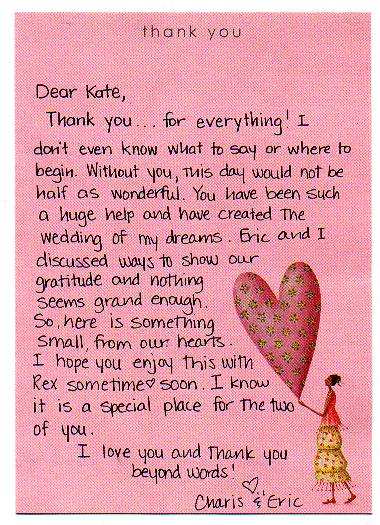 thank you
Dear Kate,
Thank you... for everything! I
don't even know what to say or where to
begin. Without you, this day would not be
half as wonderful. You have been such
a huge help and have created the
wedding of my dreams. Eric and I
discussed ways to show our
gratitude and nothing
seems grand enough.
So, here is something
small, from our hearts.
I hope you enjoy this with
Rex sometime♡ soon. I know
it is a special place for the two
of you.
I love you and Thank you
beyond words!
♡
Charis & Eric